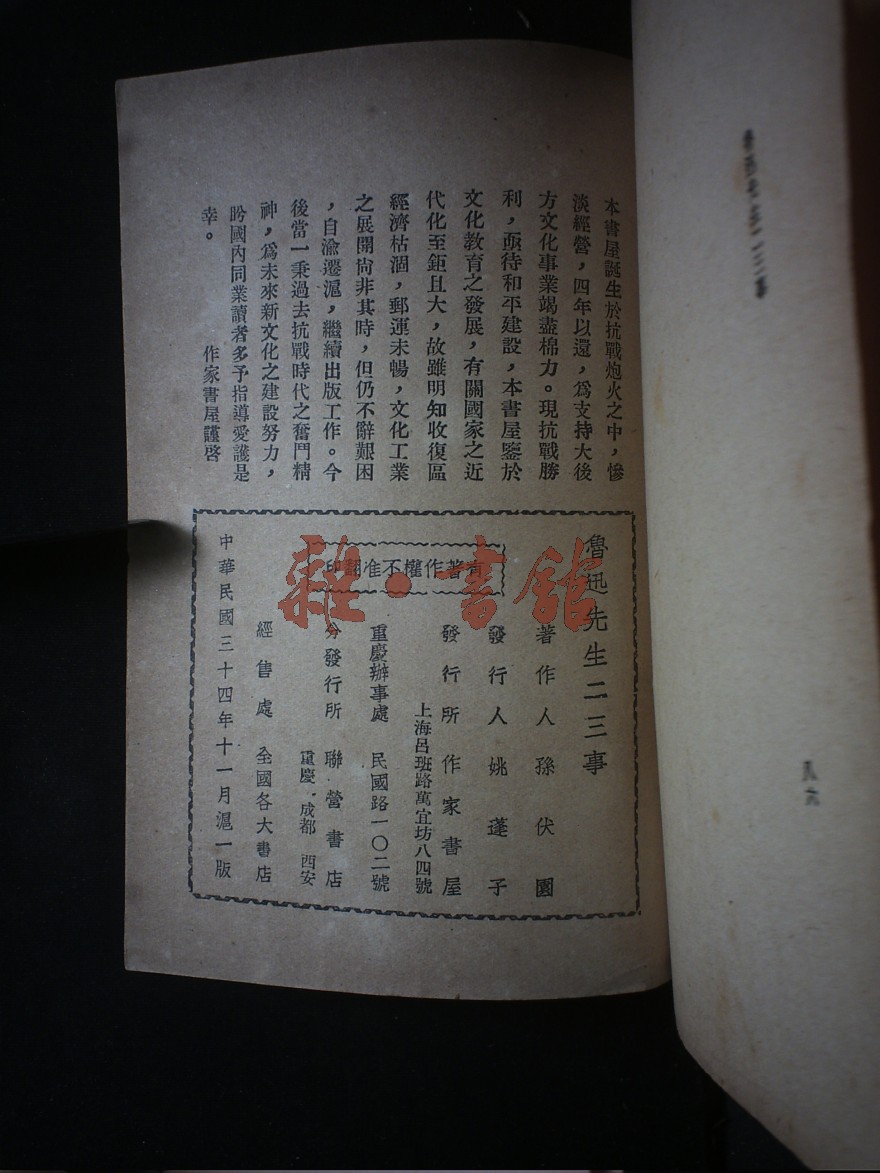 本書屋誕生於抗戰炮火之中，慘
淡經營，四年以還，爲支持大後
方文化事業竭盡棉力。現抗戰勝
利，亟待和平建設，本書屋鑒於
文化教育之發展，有關國家之近
代化至鉅且大，故雖明知收復區
經濟枯涸，郵運未暢，文化工業
之展開尙非其時，但仍不辭艱困
，自渝遷滬，繼續出版工作。今
後當一秉過去抗戰時代之奮鬥精
神，爲未來新文化之建設努力，
盼國內同業讀者多予指導愛護是
幸。
作家書屋謹啓
魯迅先生二三事
著作人 孫伏園
發行人 姚蓬子
發行所 作家書屋
上海呂班路萬宜坊八四號
重慶辦事處 民國路一〇二號
分發行所 聯營書店
重慶．成都 西安
經售處 全國各大書店
中華民國三十四年十一月滬一版
有著作權不准翻印
雜·書館
八六